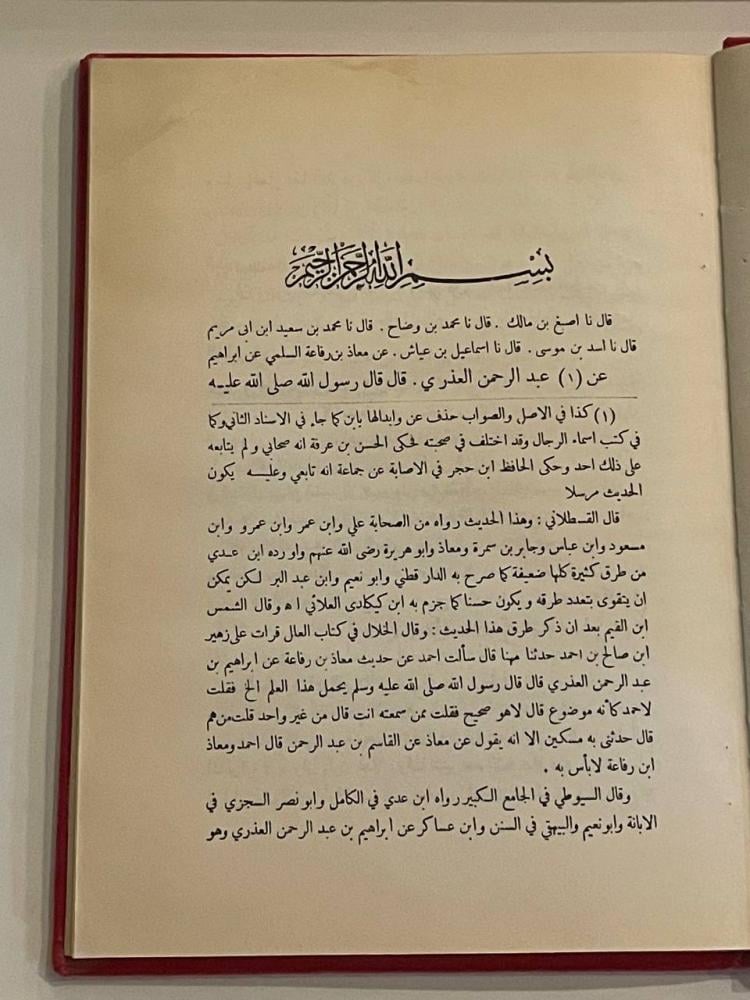 بسم الله الرحمن الرحيم
قال نا اصبغ بن مالك . قال نا محمد بن وضاح . قال نا محمد بن سعيد ابن ابى مريم
قال نا اسد بن موسى . قال نا اسماعيل بن عياش . عن معاذ بن رفاعة السلمي عن ابراهيم
عن (١) عبد الرحمن العذري . قال قال رسول الله صلى الله عليه
(١) كذا في الاصل والصواب حذف عن وابدالها بابن كما جاء في الاسناد الثاني وكما
في كتب اسماء الرجال وقد اختلف في صحبته فحكى الحسن بن عرفة انه صحابي ولم يتابعه
على ذلك احد وحكى الحافظ ابن حجر في الاصابة عن جماعة انه تابعي وعليه يكون
الحديث مرسلا
قال القسطلاني : وهذا الحديث رواه من الصحابة علي وابن عمر وابن عمرو وابن
مسعود وابن عباس وجابر بن سمرة ومعاذ وابو هريرة رضى الله عنهم واورده ابن عدي
من طرق كثيرة كلها ضعيفة كما صرح به الدار قطني وابو نعيم وابن عبد البر لكن يمكن
ان يتقوى بتعدد طرقه ويكون حسنا كما جزم به ابن كيكلدى العلائي اه وقال الشمس
ابن القيم بعد ان ذكر طرق هذا الحديث : وقال الخلال في كتاب العال قرات على زهير
ابن صالح بن احمد حدثنا مهنا قال سألت احمد عن حديث معاذ بن رفاعة عن ابراهيم بن
عبد الرحمن العذري قال قال رسول الله صلى الله عليه وسلم يحمل هذا العلم الخ فقلت
لاحمد كأنه موضوع قال لاهو صحيح فقلت ممن سمعته انت قال من غير واحد قلت من هم
قال حدثنى به مسكين الا انه يقول عن معاذ عن القاسم بن عبد الرحمن قال احمد ومعاذ
ابن رفاعة لابأس به .
وقال السيوطي في الجامع الكبير رواه ابن عدي في الكامل وابو نصر السجزي في
الابانة وابو نعيم والبيهقي في السنن وابن عساكر عن ابراهيم بن عبد الرحمن العذري وهو